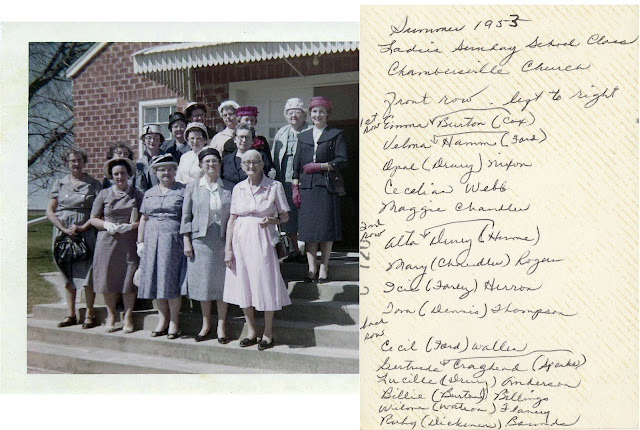 Summer 1953
Ladies Sunday School Class
Chambersville Church
Front row left to right
1st row
Emma Burton (Cox)
Velma Hamm (Ford)
Opal (Drury) Nixon
Cecelia Webb
Maggie Chandler
2nd row
Alta Drury (Horme)
Mary (Chandler) Rogers
Icie (Forey) Herron
Tom (Dennis) Thompson
3rd row
Cecil (Ford) Waller
Gertrude Craghead (Sparks)
Lucille (Drury) Anderson
Billie (Burton) Billings
Wilma (Watson) Flanery
Ruby (Dickener) Bounds
C 720